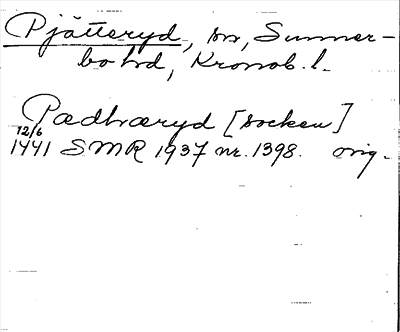 Pjätteryd, sn, Sunner-
bo hd, Kronob. l.
Pædhæryd [socken]
12/6
1441 SMR 1937 nr. 1398. orig.